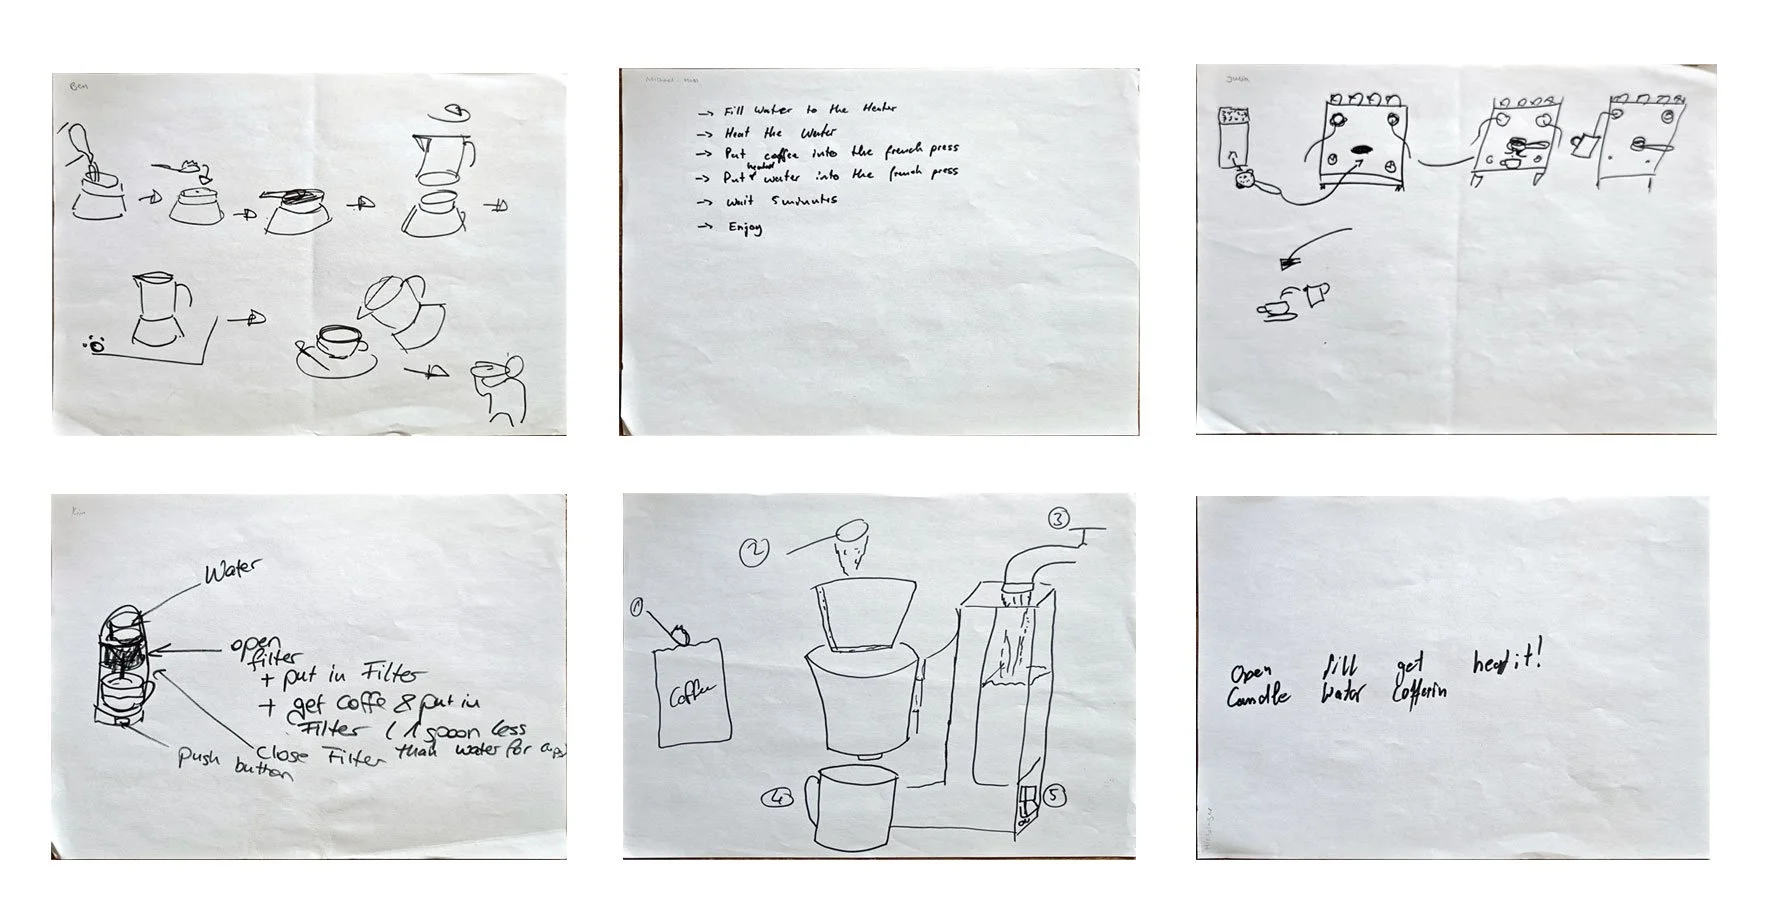 Ben
→ Fill Water to the Heater
→ Heat the Water
→ Put coffee into the french press
→ Put heated water into the french press
→ Wait 5 minutes
→ Enjoy
Kim
Water
open
filter
+ put in Filter
+ get Coffe & put in
Filter (1 spoon less
than water for cups
Close Filter
push button
1
2
3
Coffee
4
5
Open fill get heat it!
Candle Water Coffein